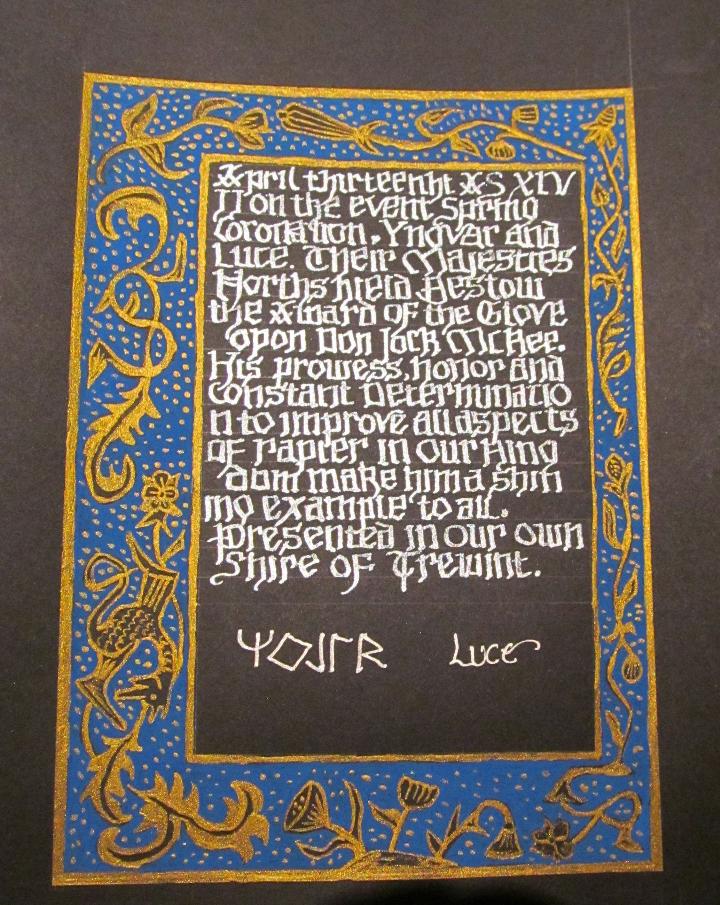 April thirteenht AS XLV
II on the event Spring
Coronation, Yngvar and
Luce. Their Majesties
Northshield Bestow
the Award of the Glove
upon Don Jock McKee.
His prowess, honor and
constant Determinatio
n to improve all aspects
of rapier in our King
dom make him a shin
ing example to all.
Presented in our own
Shire of Trewint.
ᛉᛜᛇᚴᚱ Luce